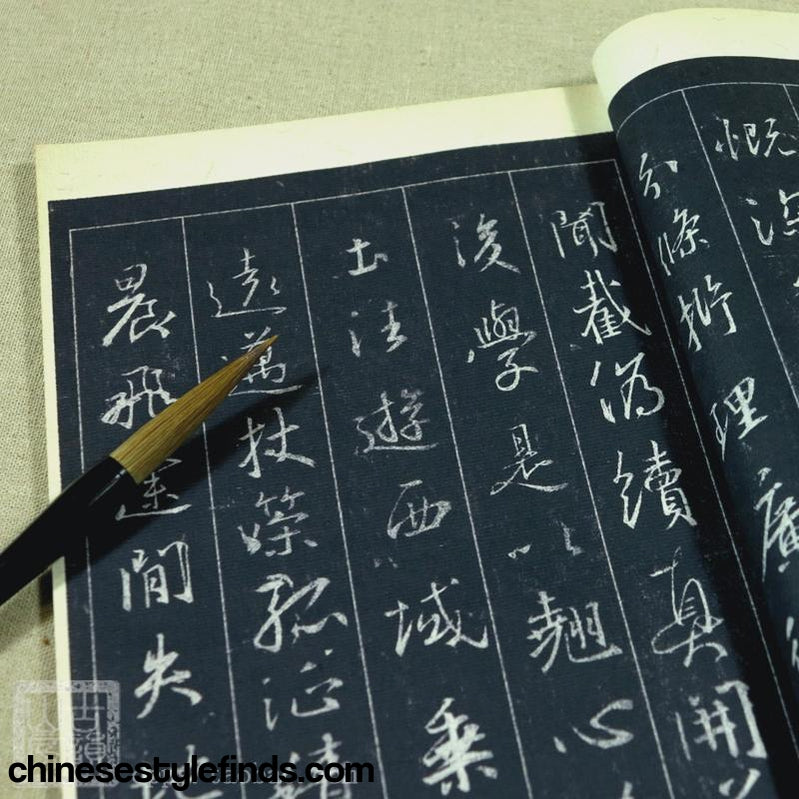 慨深
分條析理廣彼
聞截偽續真開茲
後學是以翹心
土法遊西域乘
遠邁杖策孤征積
晨飛途間失地
chinesestylefinds.com